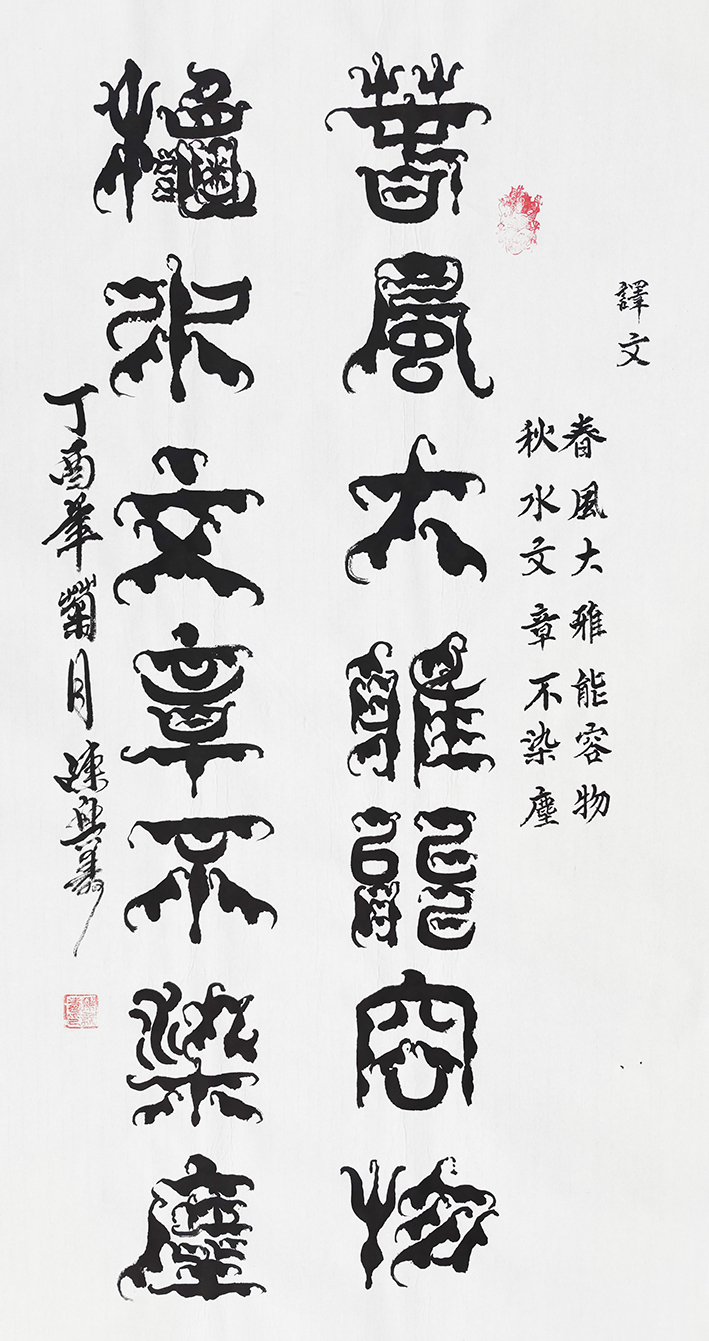 譯文
春風大雅能容物
秋水文章不染塵
萅風大雅能容物
龝水文章不染塵
丁酉年菊月 陳興